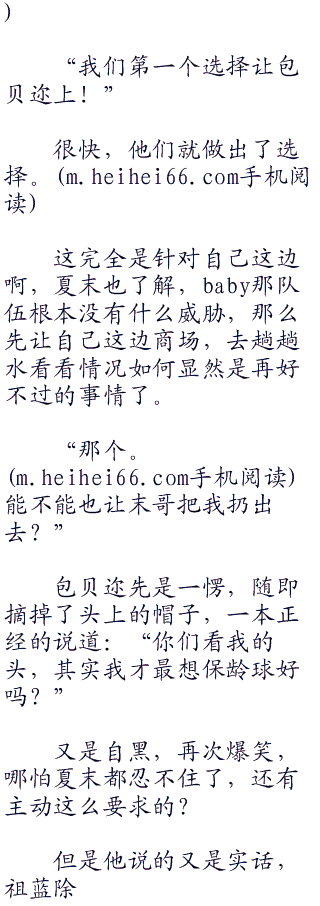 )
“我们第一个选择让包
贝迩上！”
很快，他们就做出了选
择。(m.heihei66.com手机阅
读)
这完全是针对自己这边
啊，夏末也了解，baby那队
伍根本没有什么威胁，那么
先让自己这边商场，去趟趟
水看看情况如何显然是再好
不过的事情了。
“那个。
(m.heihei66.com手机阅读)
能不能也让末哥把我扔出
去？”
包贝迩先是一愣，随即
摘掉了头上的帽子，一本正
经的说道：“你们看我的
头，其实我才最想保龄球好
吗？”
又是自黑，再次爆笑，
哪怕夏末都忍不住了，还有
主动这么要求的？
但是他说的又是实话，
祖蓝除